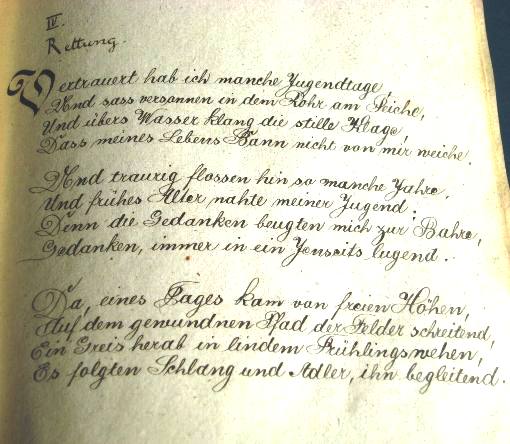 IV.
Rettung.
Vertrauert hab ich manche Jugendtage,
Und sass versonnen in dem Rohr am Teiche,
Und übers Wasser klang die stille Klage,
Dass meines Lebens Bann nicht von mir weiche.
Und traurig flossen hin so manche Jahre,
Und frühes Alter nahte meiner Jugend.
Denn die Gedanken beugten mich zur Bahre,
Gedanken, immer in ein Jenseits lugend.
Da, eines Tages kam von freien Höhen,
Auf dem gewundnen Pfad der Felder schreitend,
Ein Greis herab in lindem Frühlingswehen,
Es folgten Schlang und Adler, ihn begleitend.